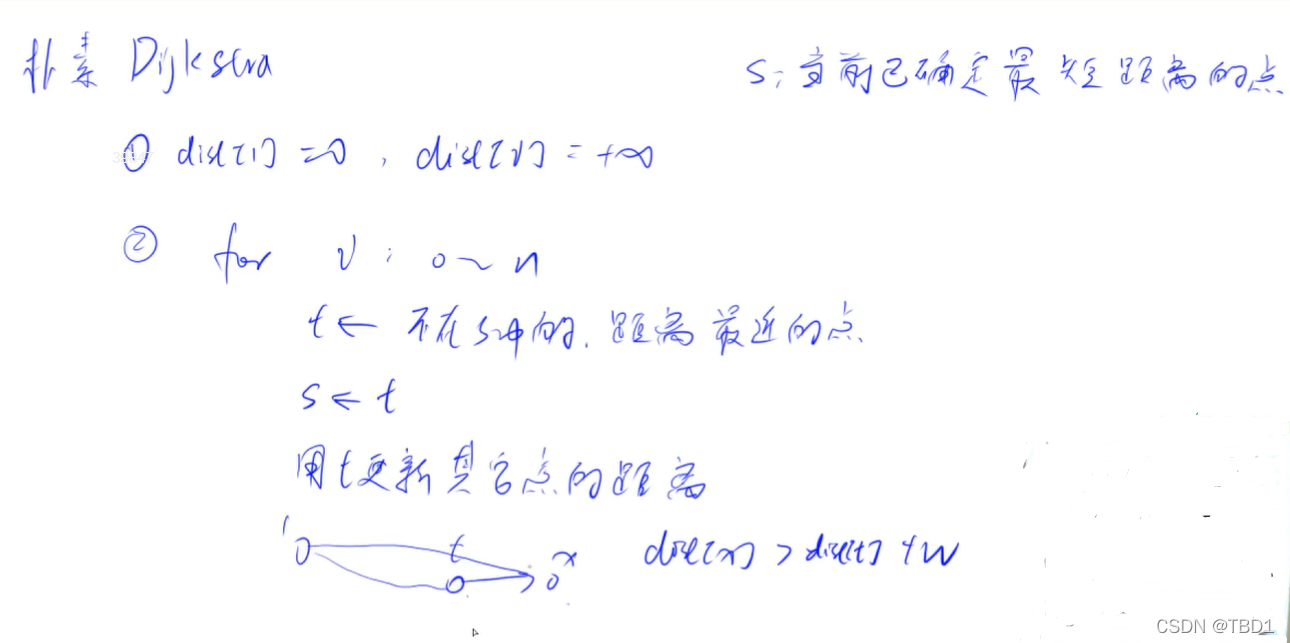 朴素 Dijkstra
S: 当前已确定最短距离的点
① dist[1] = 0 , dist[v] = +∞
② for v : 0 ~ n
t ← 不在S中的, 距离最近的点
S ← t
用t更新其它点的距离
1 t x dist[x] > dist[t] + w
CSDN @TBD1